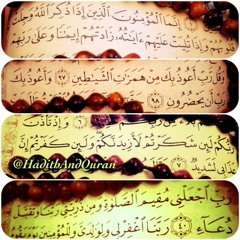 إِنَّمَا الْمُؤْمِنُونَ الَّذِينَ إِذَا ذُكِرَ اللَّهُ وَجِلَتْ
قُلُوبُهُمْ وَإِذَا تُلِيَتْ عَلَيْهِمْ ءَايَٰتُهُ زَادَتْهُمْ إِيمَٰنًا وَعَلَىٰ رَبِّهِمْ
وَقُل رَّبِّ أَعُوذُ بِكَ مِنْ هَمَزَٰتِ الشَّيَٰطِينِ ٩٧ وَأَعُوذُ بِكَ
رَبِّ أَن يَحْضُرُونِ ٩٨
وَإِذْ تَأَذَّنَ
لَئِن شَكَرْتُمْ لَأَزِيدَنَّكُمْ وَلَئِن كَفَرْتُمْ إِنَّ
عَذَابِي لَشَدِيدٌ
@HadithAndQuran
رَبِّ اجْعَلْنِي مُقِيمَ الصَّلَوٰةِ وَمِن ذُرِّيَّتِي رَبَّنَا وَتَقَبَّلْ
دُعَآءِ ٤٠ رَبَّنَا اغْفِرْ لِي وَلِوَٰلِدَيَّ وَلِلْمُؤْمِنِينَ